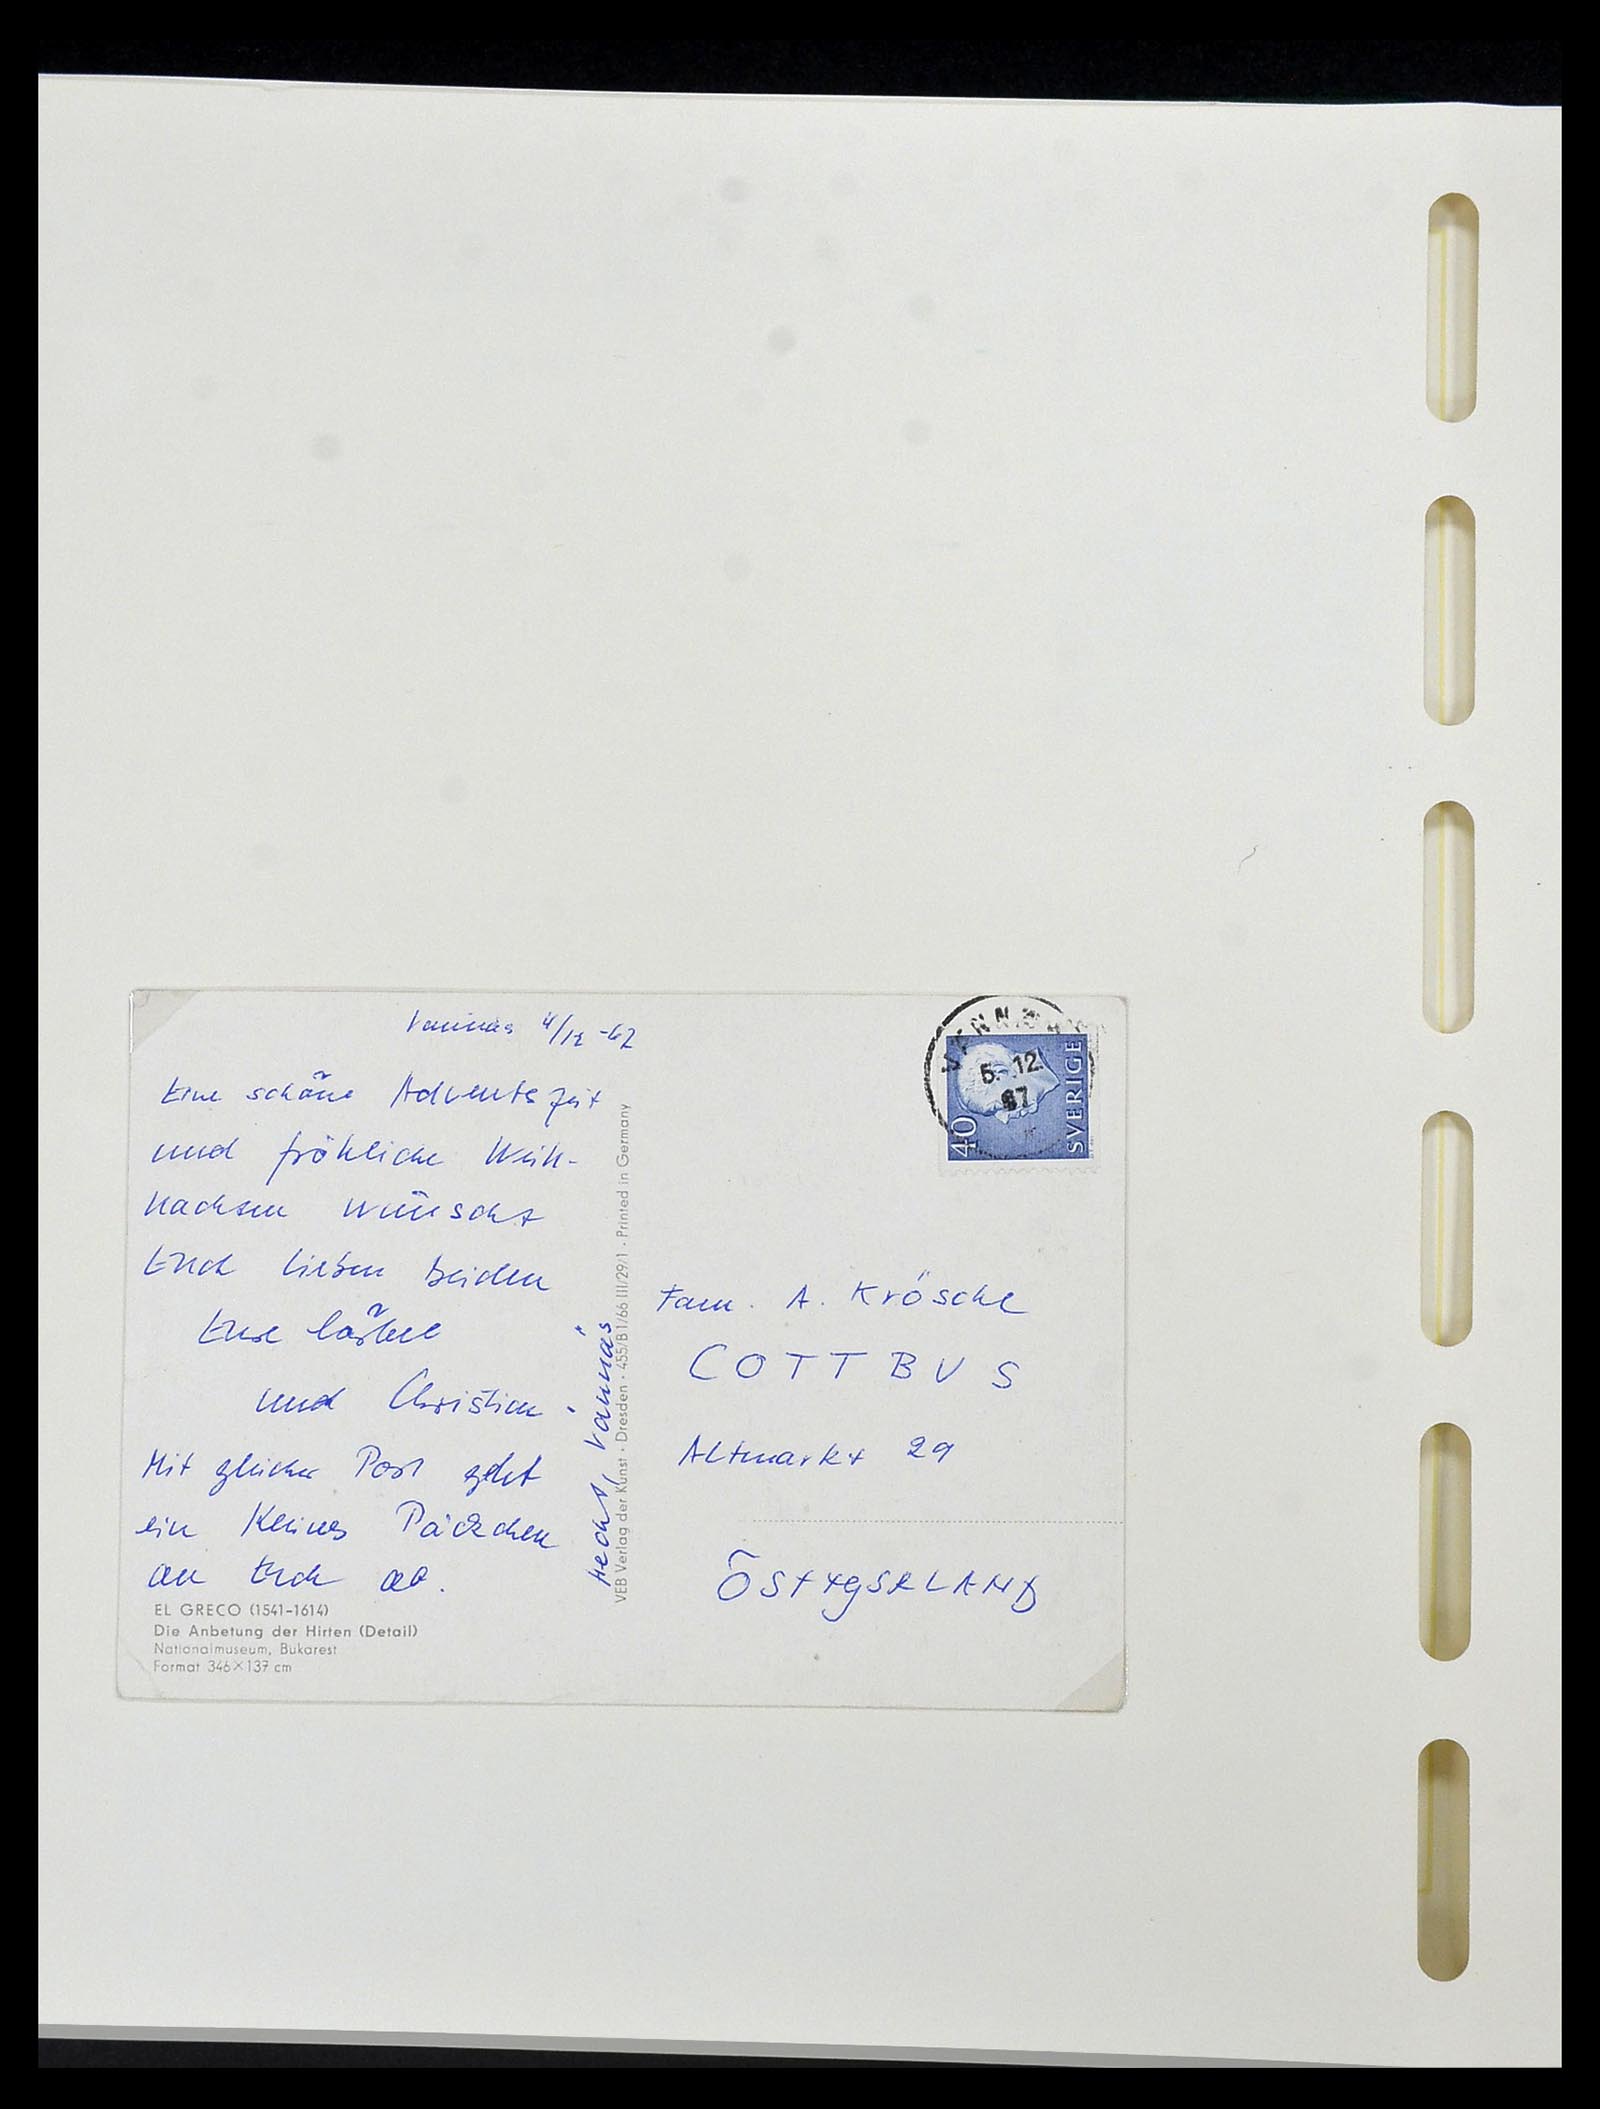 Vännäs 4/12 -67
Eine schöne Adventszeit
und fröhliche Weih-
nachten wünscht
Euch lieben beiden
Eure
und Christian.
Mit gleicher Post geht
ein kleines Päckchen
an Euch ab.
EL GRECO (1541–1614)
Die Anbetung der Hirten (Detail)
Nationalmuseum, Bukarest
Format 346×137 cm
Hecht, Vännäs
VEB Verlag der Kunst · Dresden · 455/B1/66 III/29/1 · Printed in Germany
5. 12.
67
40
SVERIGE
Fam. A. Krösche
COTTBUS
Altmarkt 29
ÖSTTYSKLAND